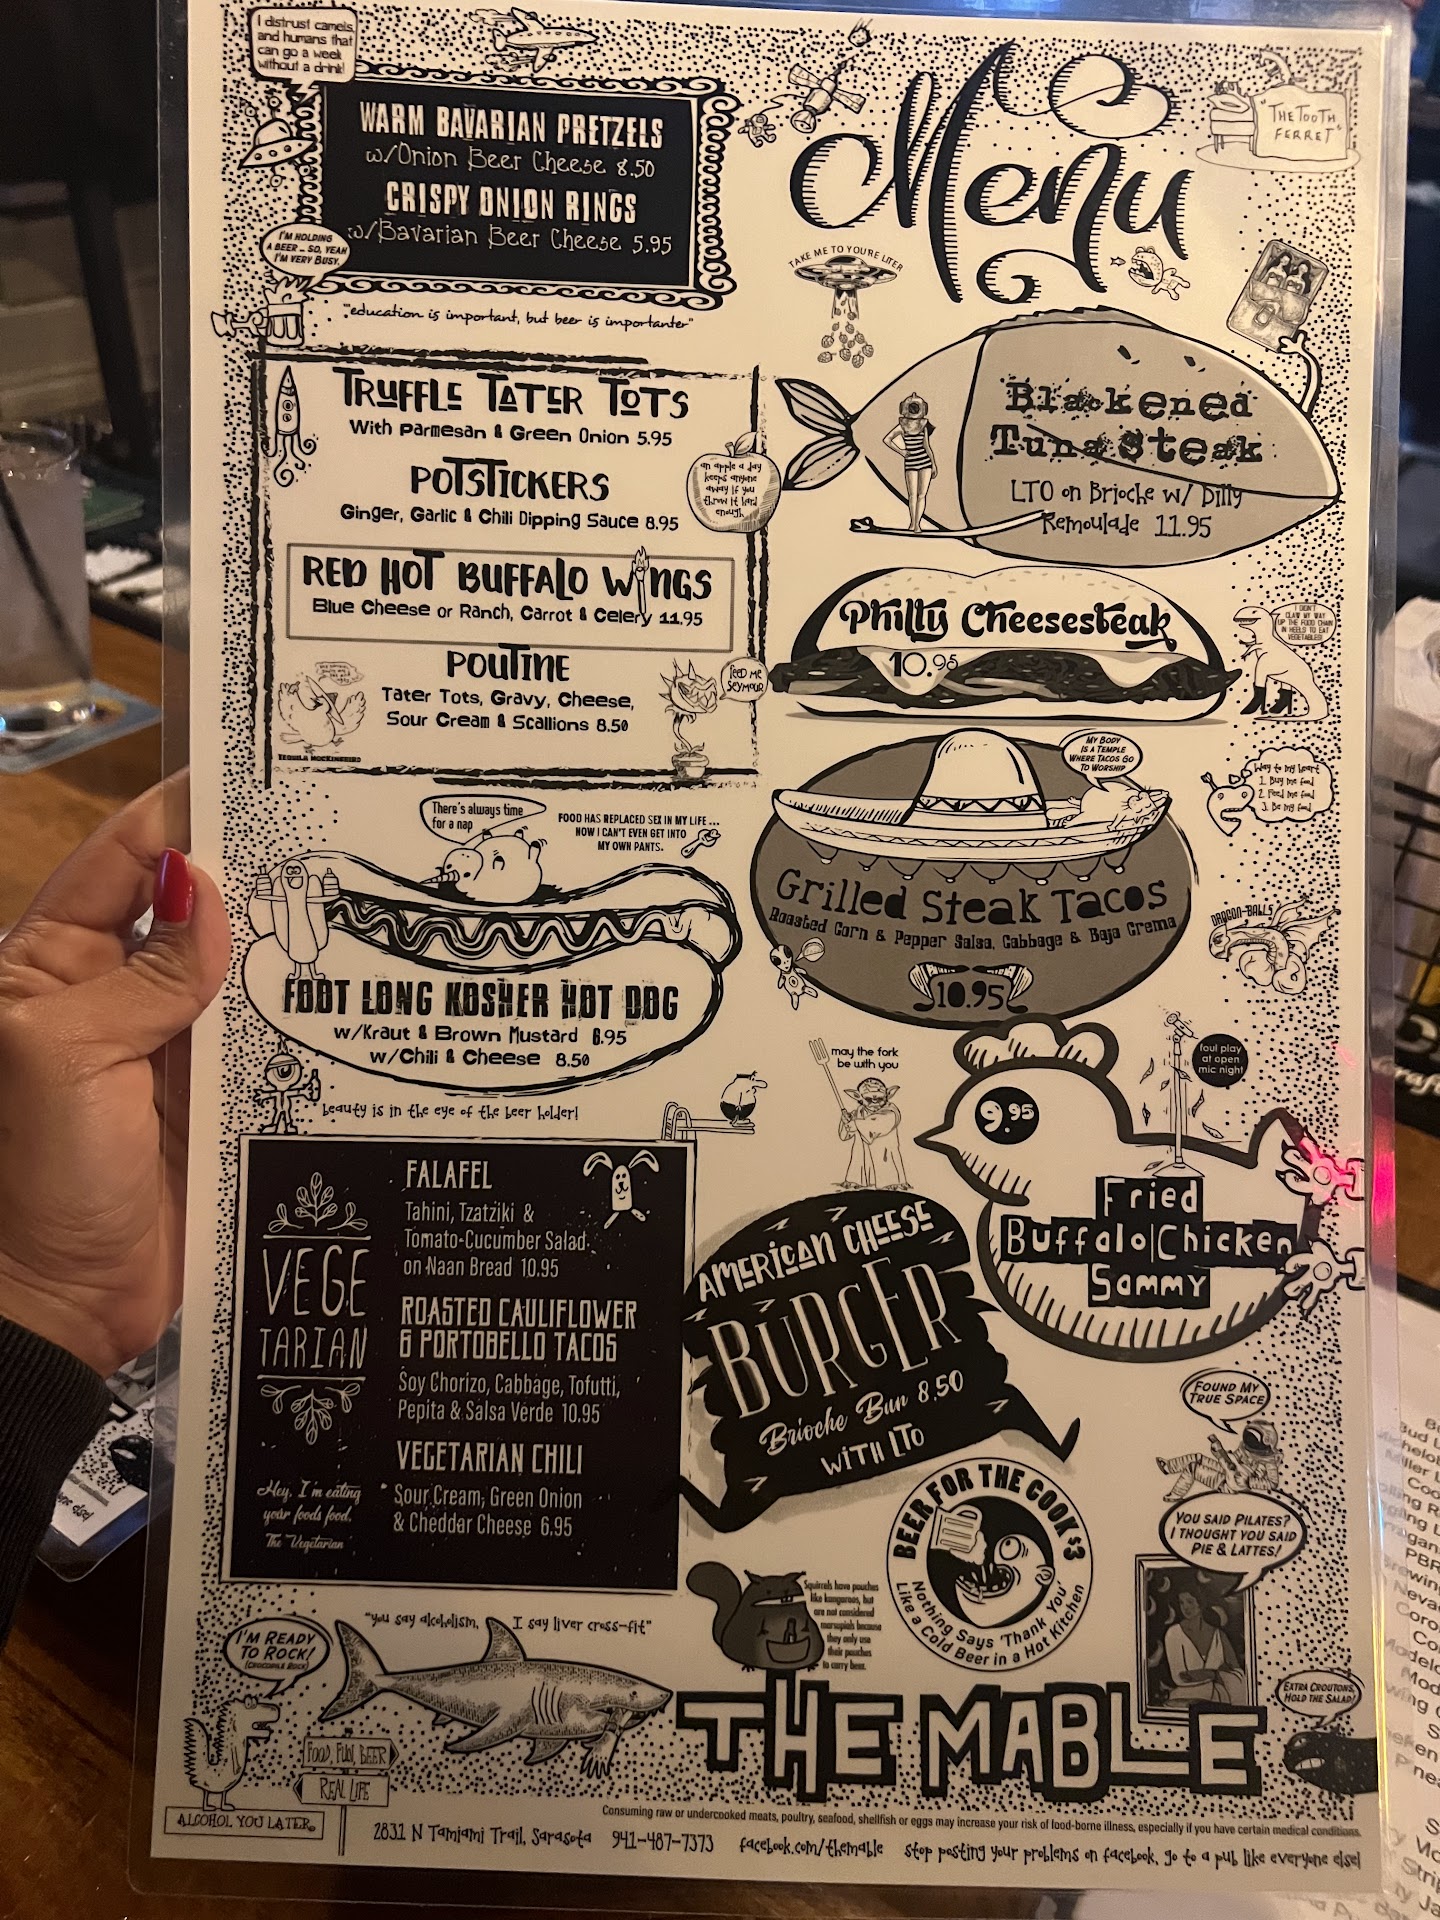 I distrust camels,
and humans that
can go a week
without a drink!
WARM BAVARIAN PRETZELS
w/Onion Beer Cheese 8.50
CRISPY ONION RINGS
w/Bavarian Beer Cheese 5.95
I'M HOLDING
A BEER ... SO, YEAH
I'M VERY BUSY.
"education is important, but beer is importanter"
Menu
"THE TOOTH
FERRET"
TAKE ME TO YOU'RE LITER
TRUFFLE TATER TOTS
With Parmesan & Green Onion 5.95
POTSTICKERS
Ginger, Garlic & Chili Dipping Sauce 8.95
an apple a day
keeps anyone
away if you
throw it hard
enough
RED HOT BUFFALO WINGS
Blue Cheese or Ranch, Carrot & Celery 11.95
POUTINE
Tater Tots, Gravy, Cheese,
Sour Cream & Scallions 8.50
TEQUILA MOCKINGBIRD
FEED ME
SEYMOUR
Blackened
Tuna Steak
LTO on Brioche w/ Dilly
Remoulade 11.95
Philly Cheesesteak
10.95
I DIDN'T
CLAW MY WAY
UP THE FOOD CHAIN
IN HEELS TO EAT
VEGETABLES!
MY BODY
IS A TEMPLE
WHERE TACOS GO
TO WORSHIP
Way to my heart
1. Buy me food
2. Feed me food
3. Be my food
Grilled Steak Tacos
Roasted Corn & Pepper Salsa, Cabbage & Baja Crema
10.95
DRAGON-BALLS
There's always time
for a nap
FOOD HAS REPLACED SEX IN MY LIFE ...
NOW I CAN'T EVEN GET INTO
MY OWN PANTS.
FOOT LONG KOSHER HOT DOG
w/Kraut & Brown Mustard 6.95
w/Chili & Cheese 8.50
beauty is in the eye of the beer holder!
may the fork
be with you
foul play
at open
mic night
9.95
Fried
Buffalo Chicken
Sammy
VEGE
TARIAN
Hey, I'm eating
your foods food.
The Vegetarian
FALAFEL
Tahini, Tzatziki &
Tomato-Cucumber Salad
on Naan Bread 10.95
ROASTED CAULIFLOWER
& PORTOBELLO TACOS
Soy Chorizo, Cabbage, Tofutti,
Pepita & Salsa Verde 10.95
VEGETARIAN CHILI
Sour Cream, Green Onion
& Cheddar Cheese 6.95
AMERICAN CHEESE
BURGER
Brioche Bun 8.50
WITH LTO
FOUND MY
TRUE SPACE
BEER FOR THE COOK $3
Nothing Says 'Thank You'
Like a Cold Beer in a Hot Kitchen
YOU SAID PILATES?
I THOUGHT YOU SAID
PIE & LATTES!
Squirrels have pouches
like kangaroos, but
are not considered
marsupials because
they only use
their pouches
to carry beer.
EXTRA CROUTONS,
HOLD THE SALAD!
"you say alcoholism, I say liver cross-fit"
I'M READY
TO ROCK!
(CROCOPILE ROCK)
FOOD, FUN, BEER
REAL LIFE
ALCOHOL YOU LATER.
THE MABLE
Consuming raw or undercooked meats, poultry, seafood, shellfish or eggs may increase your risk of food-borne illness, especially if you have certain medical conditions.
2831 N Tamiami Trail, Sarasota 941-487-7373 facebook.com/themable stop posting your problems on facebook, go to a pub like everyone else!